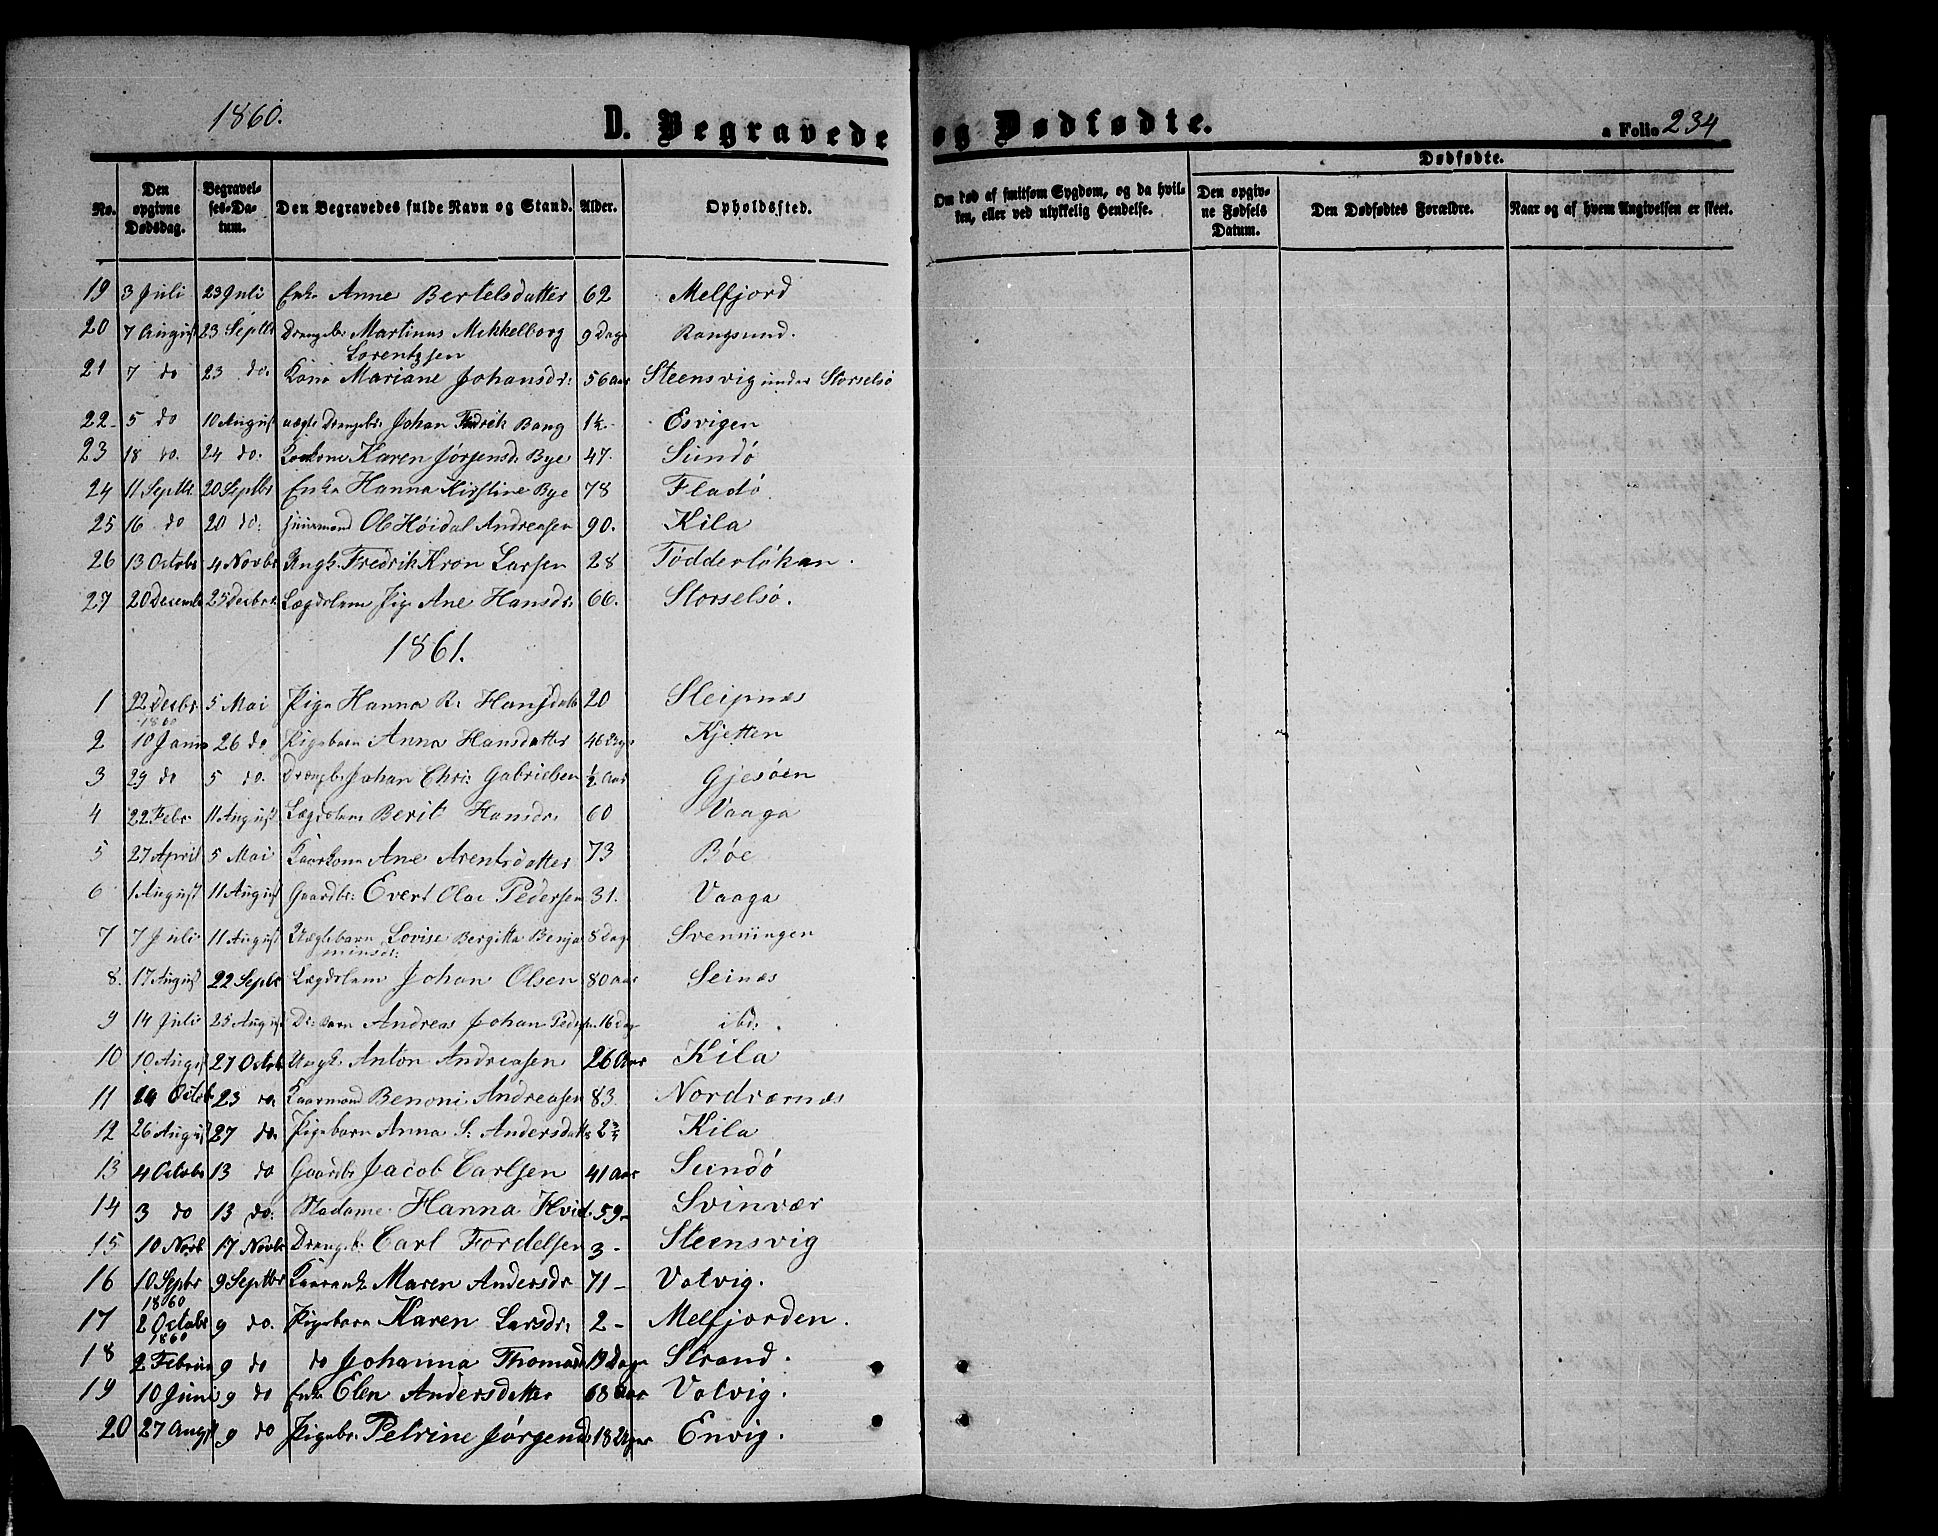 1860.
D. Begravede og Dødfødte.
a Folio 234
No. Den opgivne Dødsdag. Begravelses-Datum. Den Begravedes fulde Navn og Stand. Alder. Opholdssted. Om død af smitsom Sygdom, og da hvilken, eller ved ulykkelig Hendelse. Dødfødte. Den opgivne Fødsels Datum. Den Dødfødtes Forældre. Naar og af hvem Angivelsen er skeet.
19 3 Juli 23 Juli Enke Anne Bertelsdatter 62 Melfjord
20 7 August 23 Septbr Drengeb: Martinus Mikkelborg Lorentzsen 9 Dage Rangsund.
21 7 do 23 do. Kone Mariane Johansdr: 56 aar Steensvig under Storselsø
22 5 do 10 August uægte Drengeb: Johan Fredrik Bang 1½ Esvigen
23 18 do. 24 do: Karen Jørgensd: Bye 47. Sundø
24 11 Septbr. 20 Septbr Enke Hanna Kirstine Bye 78 Fladø
25 16 do 20 do: Ole Høidal Andreasen 90. Kila
26 13 Octobr 4 Novbr Ungk. Fredrik Kron Larsen 28 Tødderløkan.
27 20 Decemb 25 Decbr. Lægdslem Pige Ane Hansdr: 66. Storselsø.
1861.
1 22 Decbr 1860 5 Mai Pige Hanna B. Hansdatt 20 Sleipnæs
2 10 Janu 26 do. Pigebarn Anna Hansdatter 46 Dage Kjetten
3 29 do 5 do. Drengb. Johan Chri: Gabrielsen ½ Aar Gjesøen
4 22 Febr. 11 August Lægdslem Berit Hansdr: 60 Vaaga
5 27 April 5 Mai Kaarkone Ane Arentsdatter 73 Bøe
6 1 August 11 August Gaardbr: Evert Olai Pedersen 31. Vaaga
7 7 Juli 11 August Uægtebarn Lovise Bergitta Benjaminsdr: 8 Dage Svenningen
8. 17 August 22 Septbr Lægdslem Johan Olsen 80 aar Seinæs
9 14 Juli 25 August Dr: Barn Andreas Johan Peders. 16 Dage ibd.
10 10 August 27 Octob Ungk. Anton Andreasen 26 Aar Kila
11 20 Octob 23 do. Kaarmand Benoni Andreasen 83. Nordværnæs
12 26 August 27 do. Pigebarn Anna S: Andersdatte 2 Kila
13 4 Octobr 13 do Gaardbr Jacob Carlsen 41 aar Sundø
14 3 do 13 do: Madame Hanna Hvid 59- Svinvær
15 10 Novb 17 Novbr Drengeb: Carl Fordelsen 3- Steensvig
16 10 Septbr 1860 9 Septbr Kaarenk. Maren Andersdr 71- Valvig.
17 2 Octobr 1860 9 do. Pigebarn Karen Larsdr: 2- Melfjorden.
18 2 Februa 9 do do Johanna Thomasd 19 Dage Strand.
19 10 Juni 9 do Enke Elen Andersdatter 68 Aar Valvig.
20 27 Augst 9 do Pigebr. Petrine Jørgensd 18 Uger Envig.